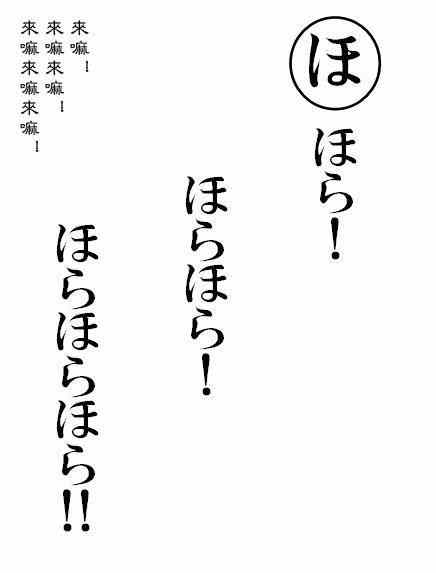 ほ
ほら！
ほらほら！
ほらほらほら!!
來嘛！
來嘛來嘛！
來嘛來嘛來嘛！